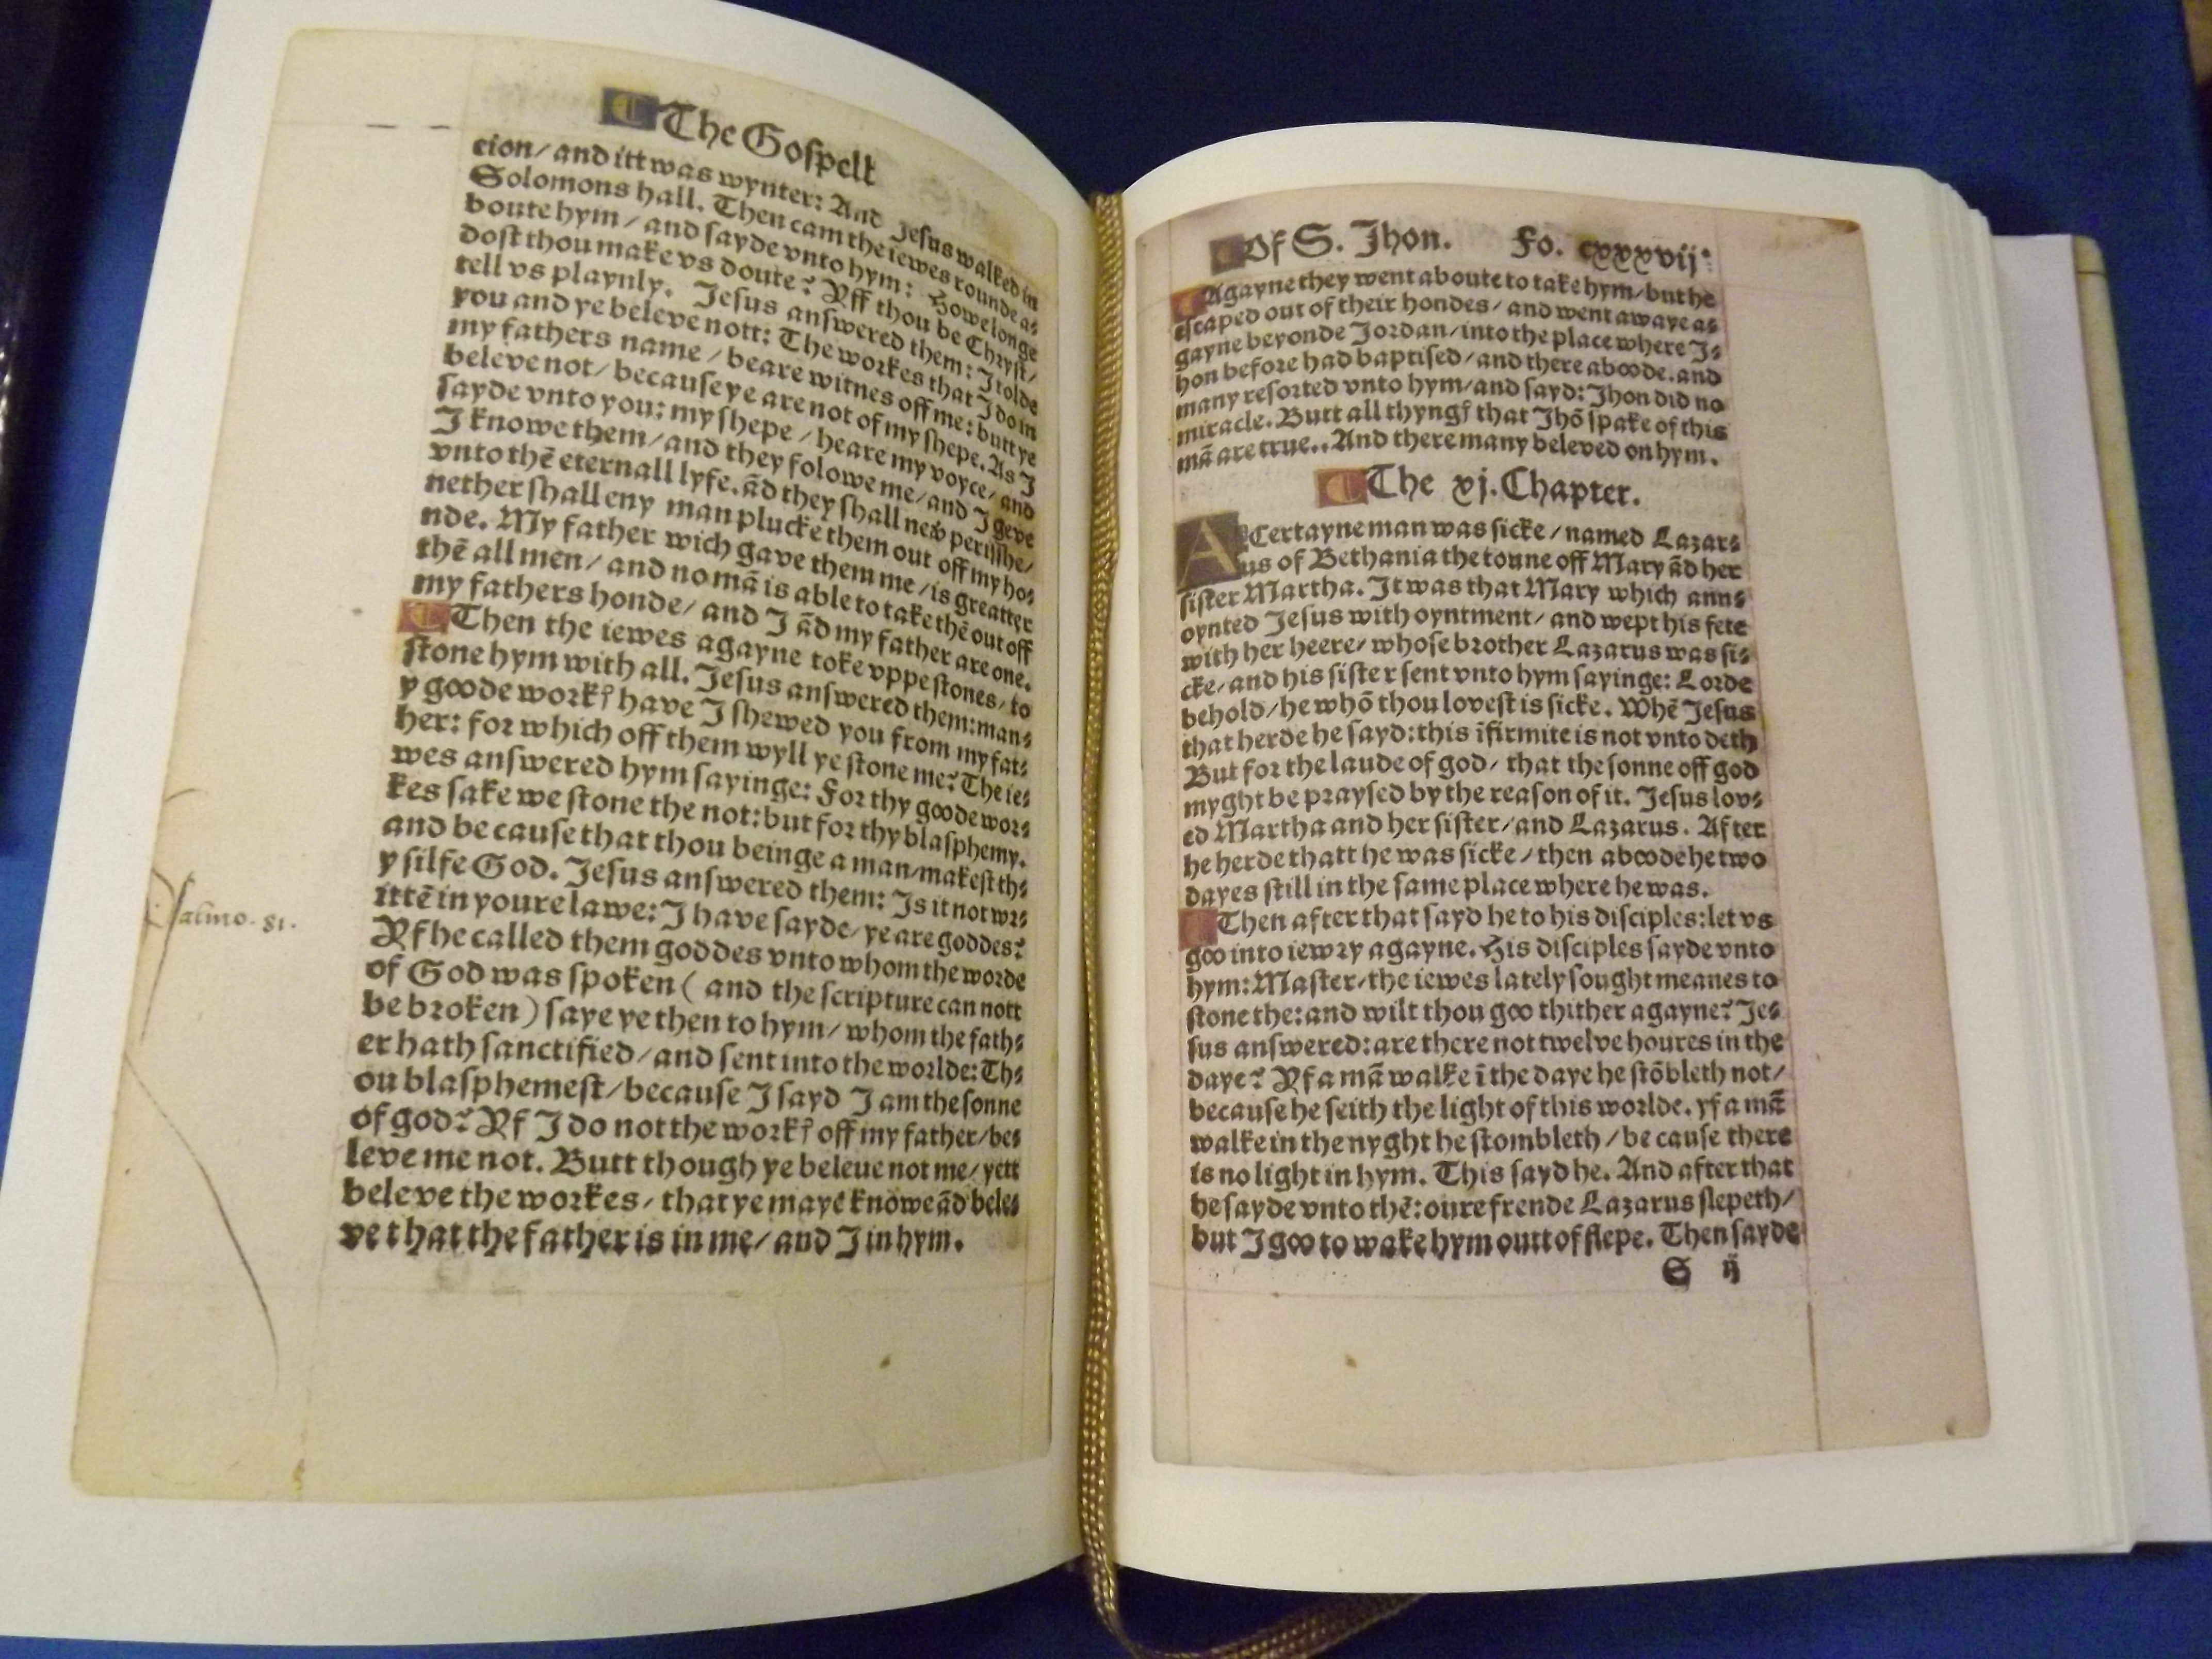 The Gospell
cion/ and itt was wynter: And Jesus walked in
Solomons hall. Then cam the iewes rounde a⸗
boute hym/ and sayde vnto hym: Howe longe
dost thou make vs doute? Yff thou be Chryst/
tell vs playnly. Jesus answered them: I tolde
you and ye beleve nott: The workes that I do in
my fathers name/ beare witnes off me: butt ye
beleve not/ because ye are not of my shepe. As I
sayde vnto you: my shepe/ heare my voyce/ and
I knowe them/ and they folowe me/ and I geve
vnto thē eternall lyfe. ād they shall never perisshe/
nether shall eny man plucke them out off my ho⸗
nde. My father wich gave them me/ is greatter
thē all men/ and no mā is able to take thē out off
my fathers honde/ and I ād my father are one.
Then the iewes agayne toke vppe stones/ to
stone hym with all. Jesus answered them: man⸗
y goode workꝭ have I shewed you from my fat⸗
her: for which off them wyll ye stone me? The ie⸗
wes answered hym sayinge: For thy goode wor⸗
kes sake we stone the not: but for thy blasphemy.
and be cause that thou beinge a man/ makest th⸗
y silfe God. Jesus answered them: Is it not wr⸗
ittē in youre lawe: I have sayde/ ye are goddes?
Yf he called them goddes vnto whom the worde
of God was spoken ( and the scripture can nott
be broken ) saye ye then to hym/ whom the fath⸗
er hath sanctified/ and sent into the worlde: Th⸗
ou blasphemest/ because I sayd I am the sonne
of god? Yf I do not the workꝭ off my father/ be⸗
leve me not. Butt though ye beleue not me/ yett
beleve the workes/ that ye maye knowe ād bele⸗
ve that the father is in me/ and I in hym.
Psalmo. 81.
Of S. Jhon. Fo. cxxxvij.
Agayne they went aboute to take hym/ but he
escaped out of their hondes/ and went awaye a⸗
gayne beyonde Jordan/ into the place where J⸗
hon before had baptised/ and there aboode. and
many resorted vnto hym/ and sayd: Jhon did no
miracle. Butt all thyngꝭ that Jhō spake of this
mā are true.. And there many beleved on hym.
The xj. Chapter.
A Certayne man was sicke/ named Lazar⸗
us of Bethania the toune off Mary ād her
sister Martha. It was that Mary which ann⸗
oynted Jesus with oyntment/ and wept his fete
with her heere/ whose brother Lazarus was si⸗
cke/ and his sister sent vnto hym sayinge: Lorde
behold/ he whō thou lovest is sicke. Whē Jesus
that herde he sayd: this īfirmite is not vnto deth
But for the laude of god/ that the sonne off god
myght be praysed by the reason of it. Jesus lov⸗
ed Martha and her sister/ and Lazarus. After
he herde thatt he was sicke/ then aboode he two
dayes still in the same place where he was.
Then after that sayd he to his disciples: let vs
goo into iewry agayne. His disciples sayde vnto
hym: Master/ the iewes lately sought meanes to
stone the: and wilt thou goo thither agayne? Je⸗
sus answered: are there not twelve houres in the
daye? Yf a mā walke ī the daye he stōbleth not/
because he seith the light of this worlde. yf a mā
walke in the nyght he stombleth/ be cause there
is no light in hym. This sayd he. And after that
he sayde vnto thē: oure frende Lazarus slepeth/
but I goo to wake hym outt of slepe. Then sayde
S ij